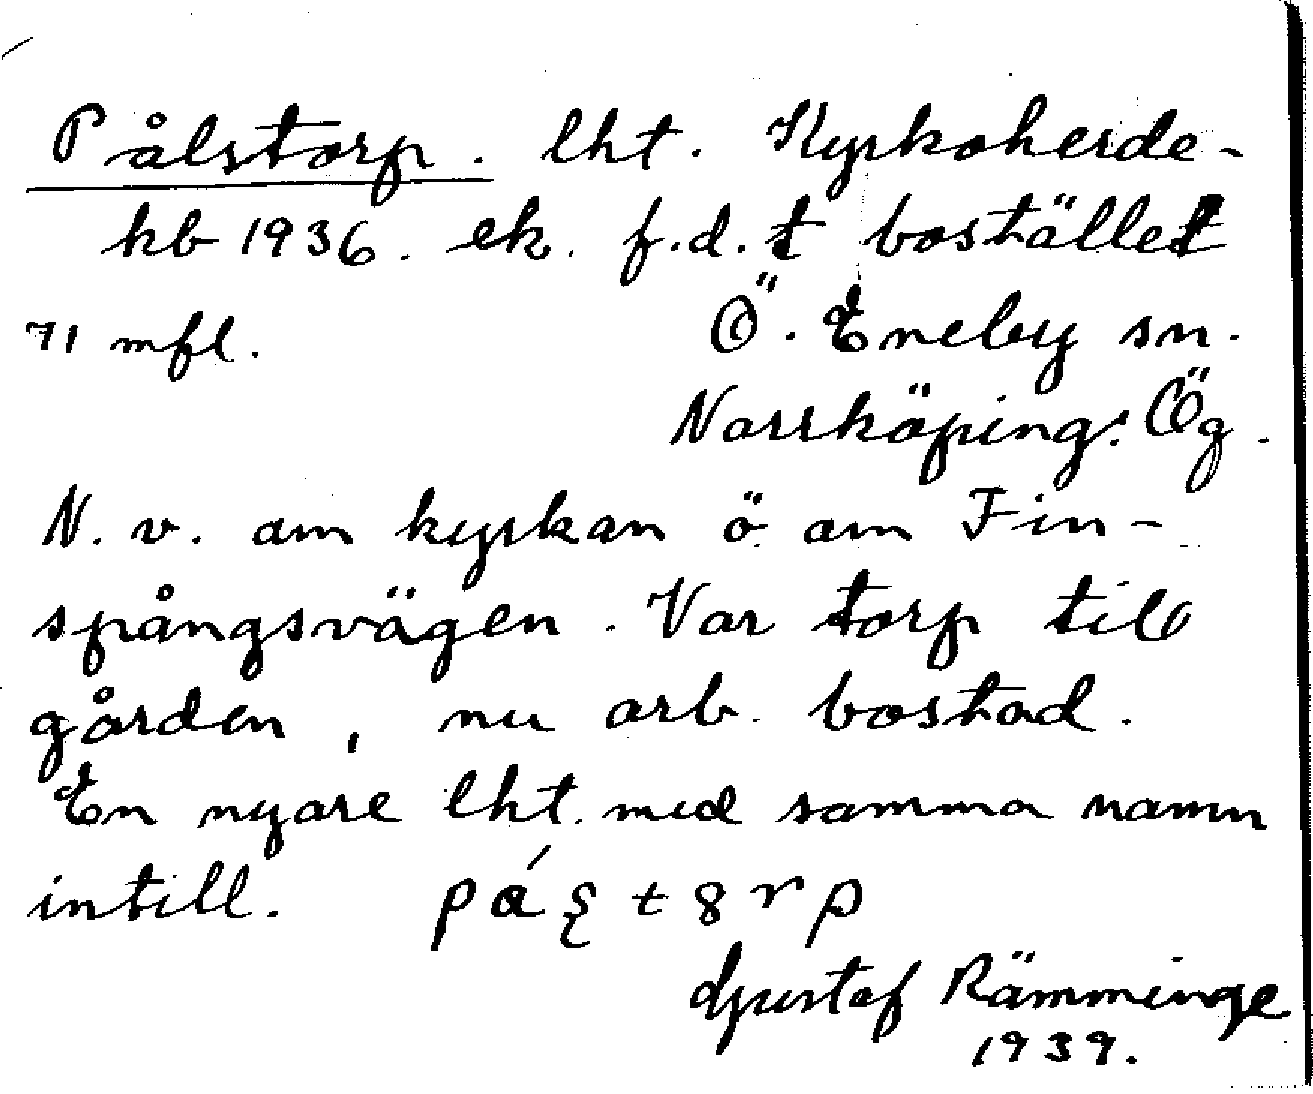 Pålstorp. lht. Kyrkoherde-
kb 1936. ek. f.d.t bostället
71 mfl. Ö. Eneby sn.
Norrköping: Ög.
N. v. om kyrkan ö. om Fin-
spångsvägen. Var torp till
gården, nu arb. bostad.
En nyare lht. med samma namn
intill.
Gustaf Rämminge
1939.